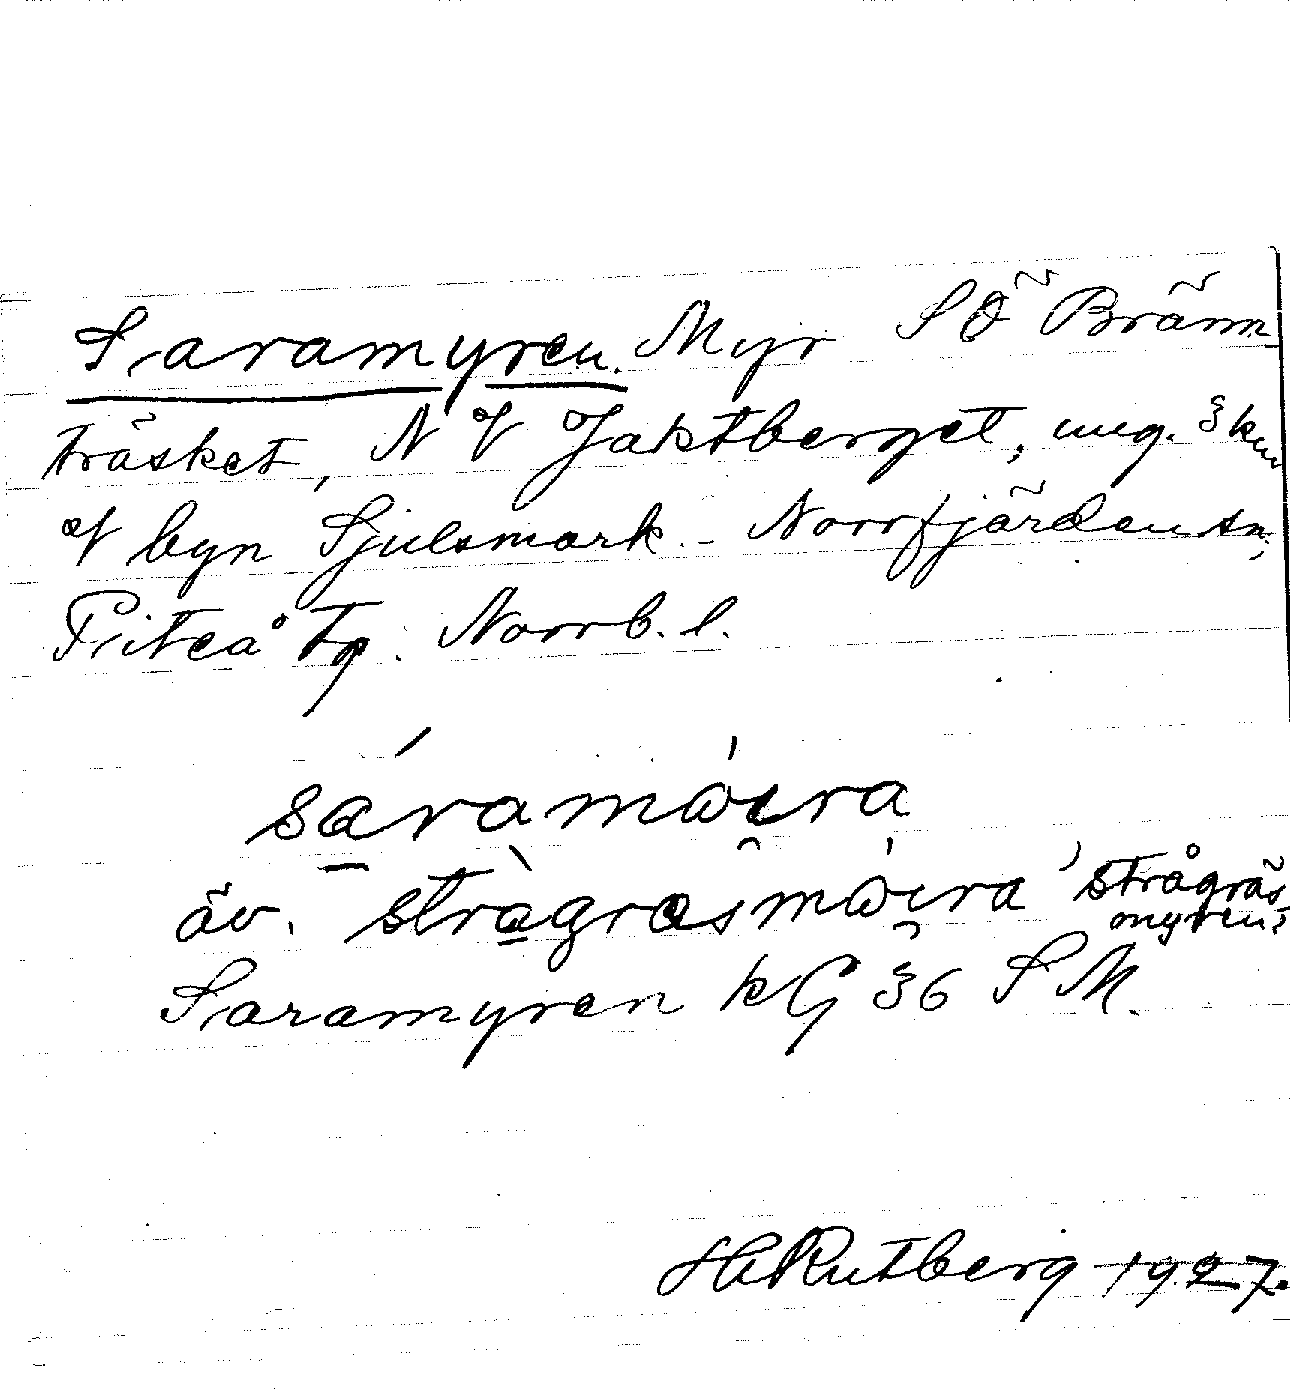 Saramyren. Myr SÖ Bränn-
träsket, NV Jaktberget, ung. 3 km
V byn Sjulsmark. - Norrfjärden sn,
Piteå tg. Norrb. l.
sáramω̂ıra
äv. stràgrasmω̂ıra 'strågräs-
myren'
Saramyren kG 36 SM.
HRutberg 1927.